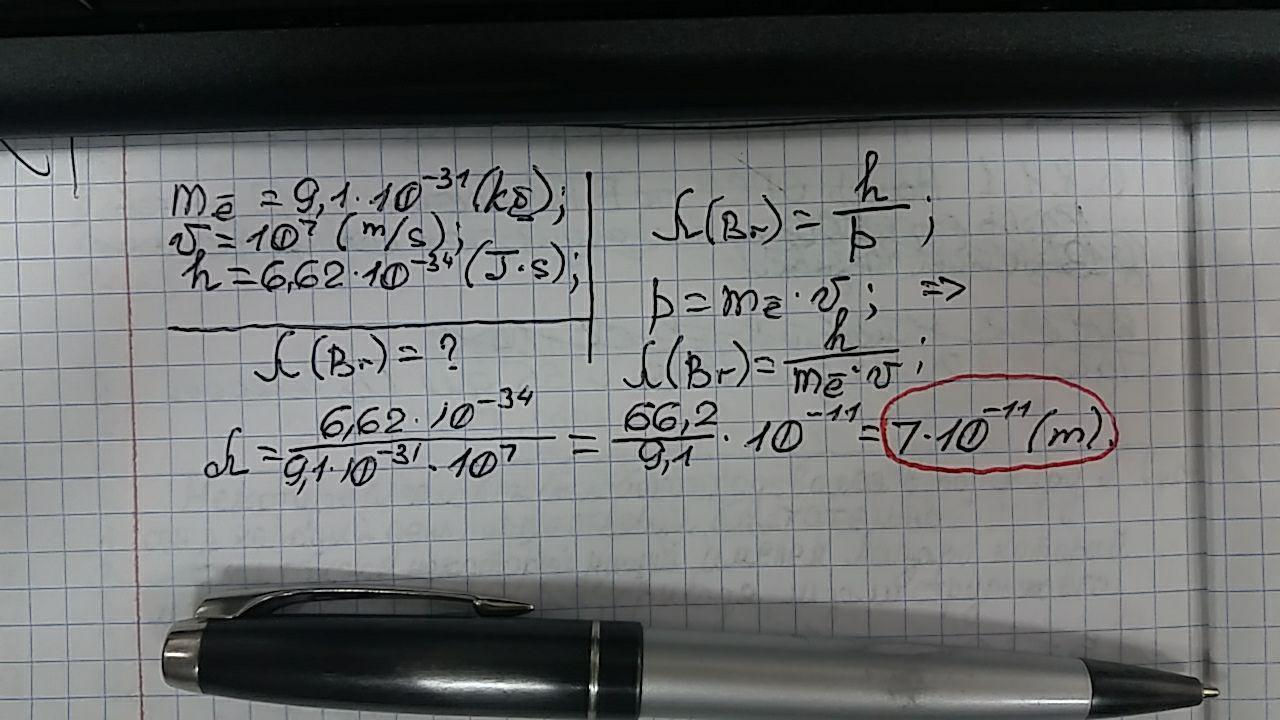 m_ē = 9,1·10⁻³¹ (kg);
v = 10⁷ (m/s);
h = 6,62·10⁻³⁴ (J·s);
λ(Br) = ?
λ(Br) = h/p ;
p = m_ē · v ; =>
λ(Br) = h/(m_ē · v) ;
λ = (6,62·10⁻³⁴)/(9,1·10⁻³¹ · 10⁷) = 66,2/9,1 · 10⁻¹¹ = 7·10⁻¹¹ (m).